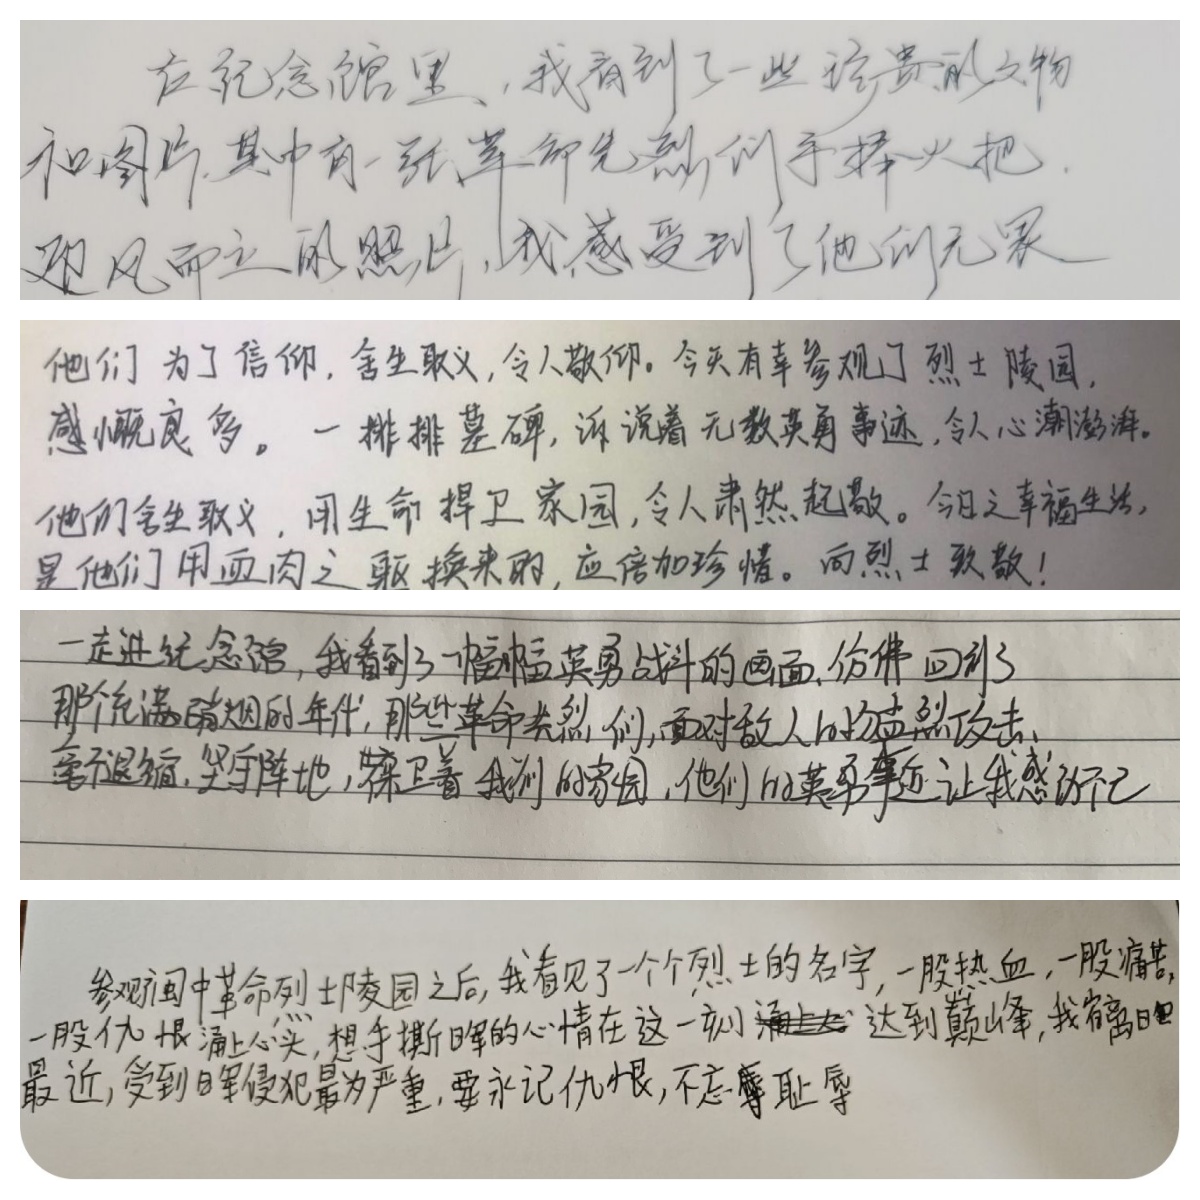 在纪念馆里，我看到了一些珍贵的文物
和图片，其中有一张革命先烈们手擇火把，
迎风而立的照片，我感受到了他们无畏
他们为了信仰，舍生取义，令人敬仰。今天有幸参观了烈士陵园，
感慨良多。一排排墓碑，诉说着无数英勇事迹，令人心潮澎湃。
他们舍生取义，用生命捍卫家园，令人肃然起敬。今日之幸福生活，
是他们用血肉之躯换来的，应倍加珍惜。向烈士致敬！
一走进纪念馆，我看到了一幅幅英勇战斗的画面，仿佛回到了
那个充满硝烟的年代，那些革命先烈们，面对敌人的猛烈攻击，
毫不退缩，坚守阵地，保卫着我们的家园，他们的英勇事迹让我感动不已
参观阆中革命烈士陵园之后，我看见了一个个烈士的名字，一股热血，一股痛苦，
一股仇恨涌上心头，想手撕日军的心情在这一刻达到巅峰，我离日
最近，受到日军侵犯最为严重，要永记仇恨，不忘耻辱